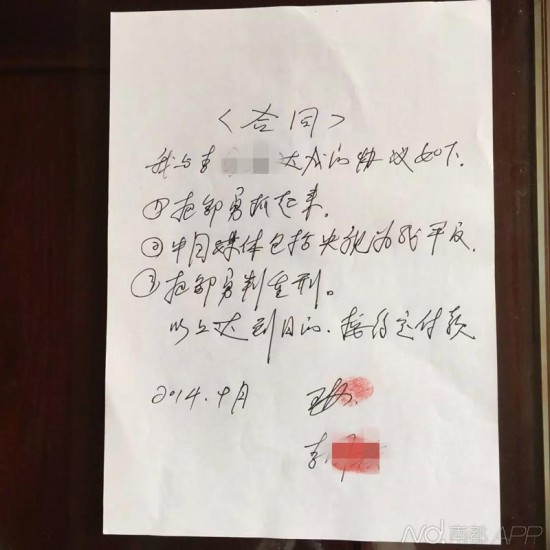 〈合同〉
我与李 达成的协议如下.
①把邹勇抓起来.
②中国媒体包括央视为我平反.
③把邹勇判重刑。
以上达到目的.按约定付款
2014.十月 王林.
李
Nd 南都 APP